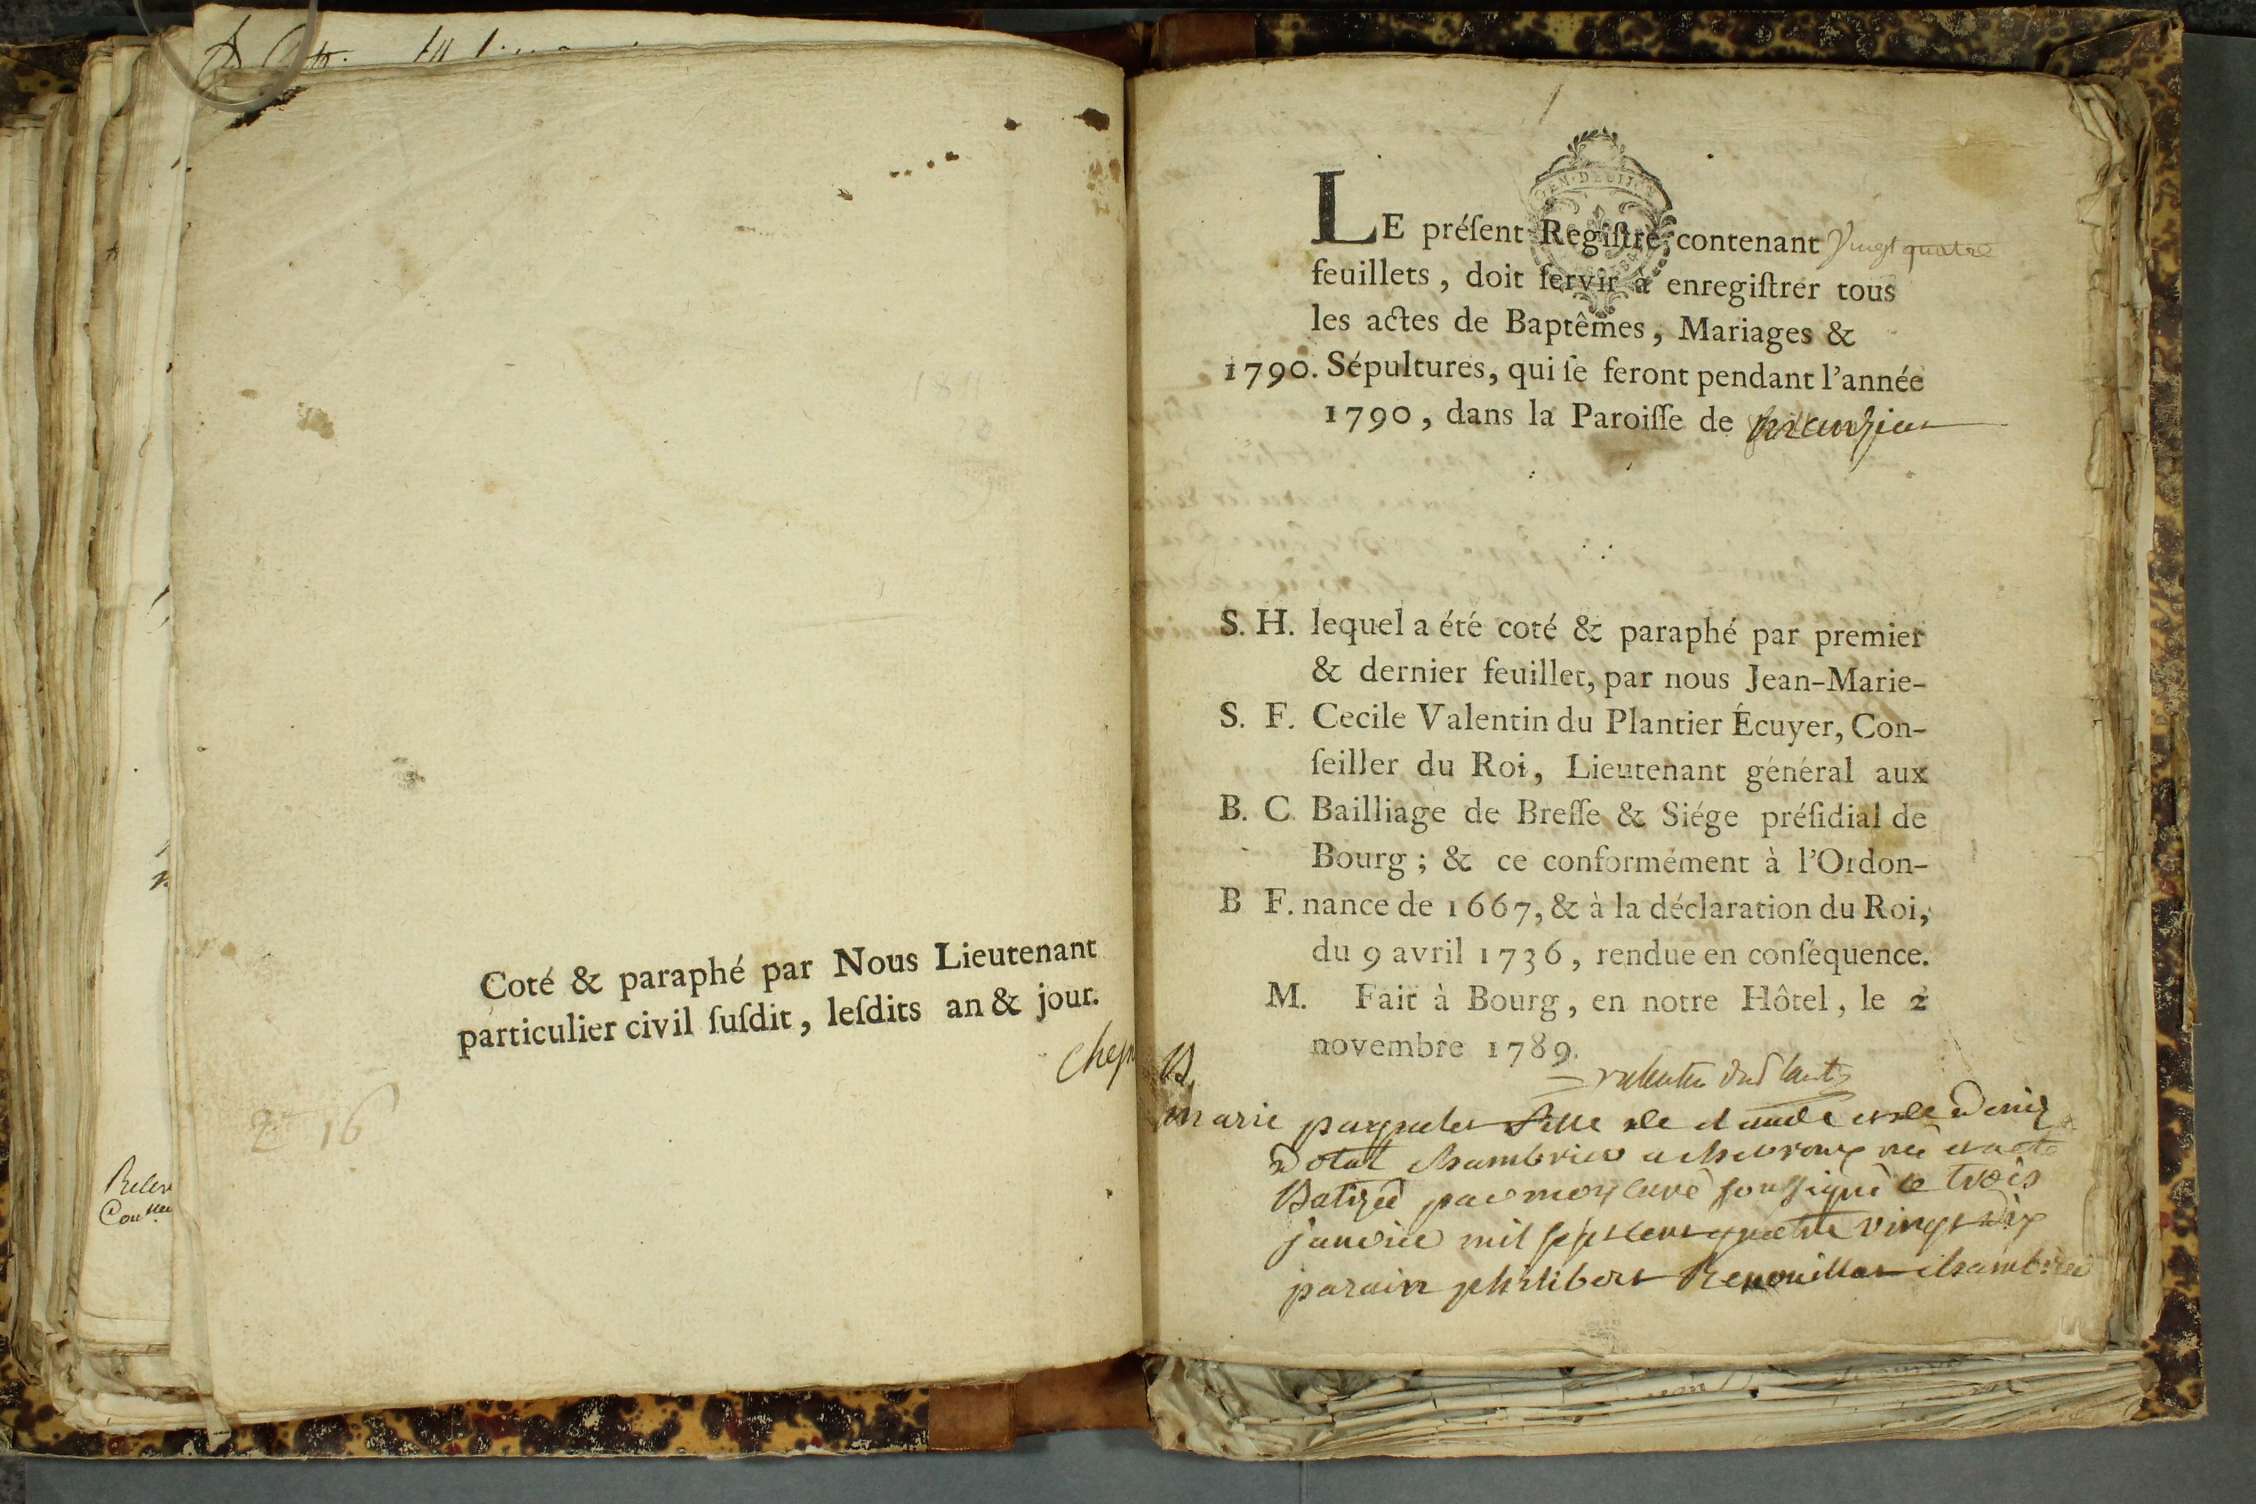 Coté & paraphé par Nous Lieutenant
particulier civil ſuſdit, leſdits an & jour.
2 16
LE préſent Regiſtre contenant Vingt quatre
feuillets, doit ſervir à enregiſtrer tous
les actes de Baptêmes, Mariages &
1790. Sépultures, qui ſe feront pendant l'année
1790, dans la Paroiſſe de
S. H. lequel a été coté & paraphé par premier
& dernier feuillet, par nous Jean-Marie-
S. F. Cecile Valentin du Plantier Écuyer, Con-
ſeiller du Roi, Lieutenant général aux
B. C. Bailliage de Breſſe & Siége préſidial de
Bourg ; & ce conformément à l'Ordon-
B F. nance de 1667, & à la déclaration du Roi,
du 9 avril 1736, rendue en conſéquence.
M. Fait à Bourg, en notre Hôtel, le 2
novembre 1789.
B.
marie fille de claude et de Deniz
chambrier a chevroux née
Batizée par moy curé soussigné le trois
janvier mil sept cent quatre vingt dix
parain philibert Renouillat chambrier